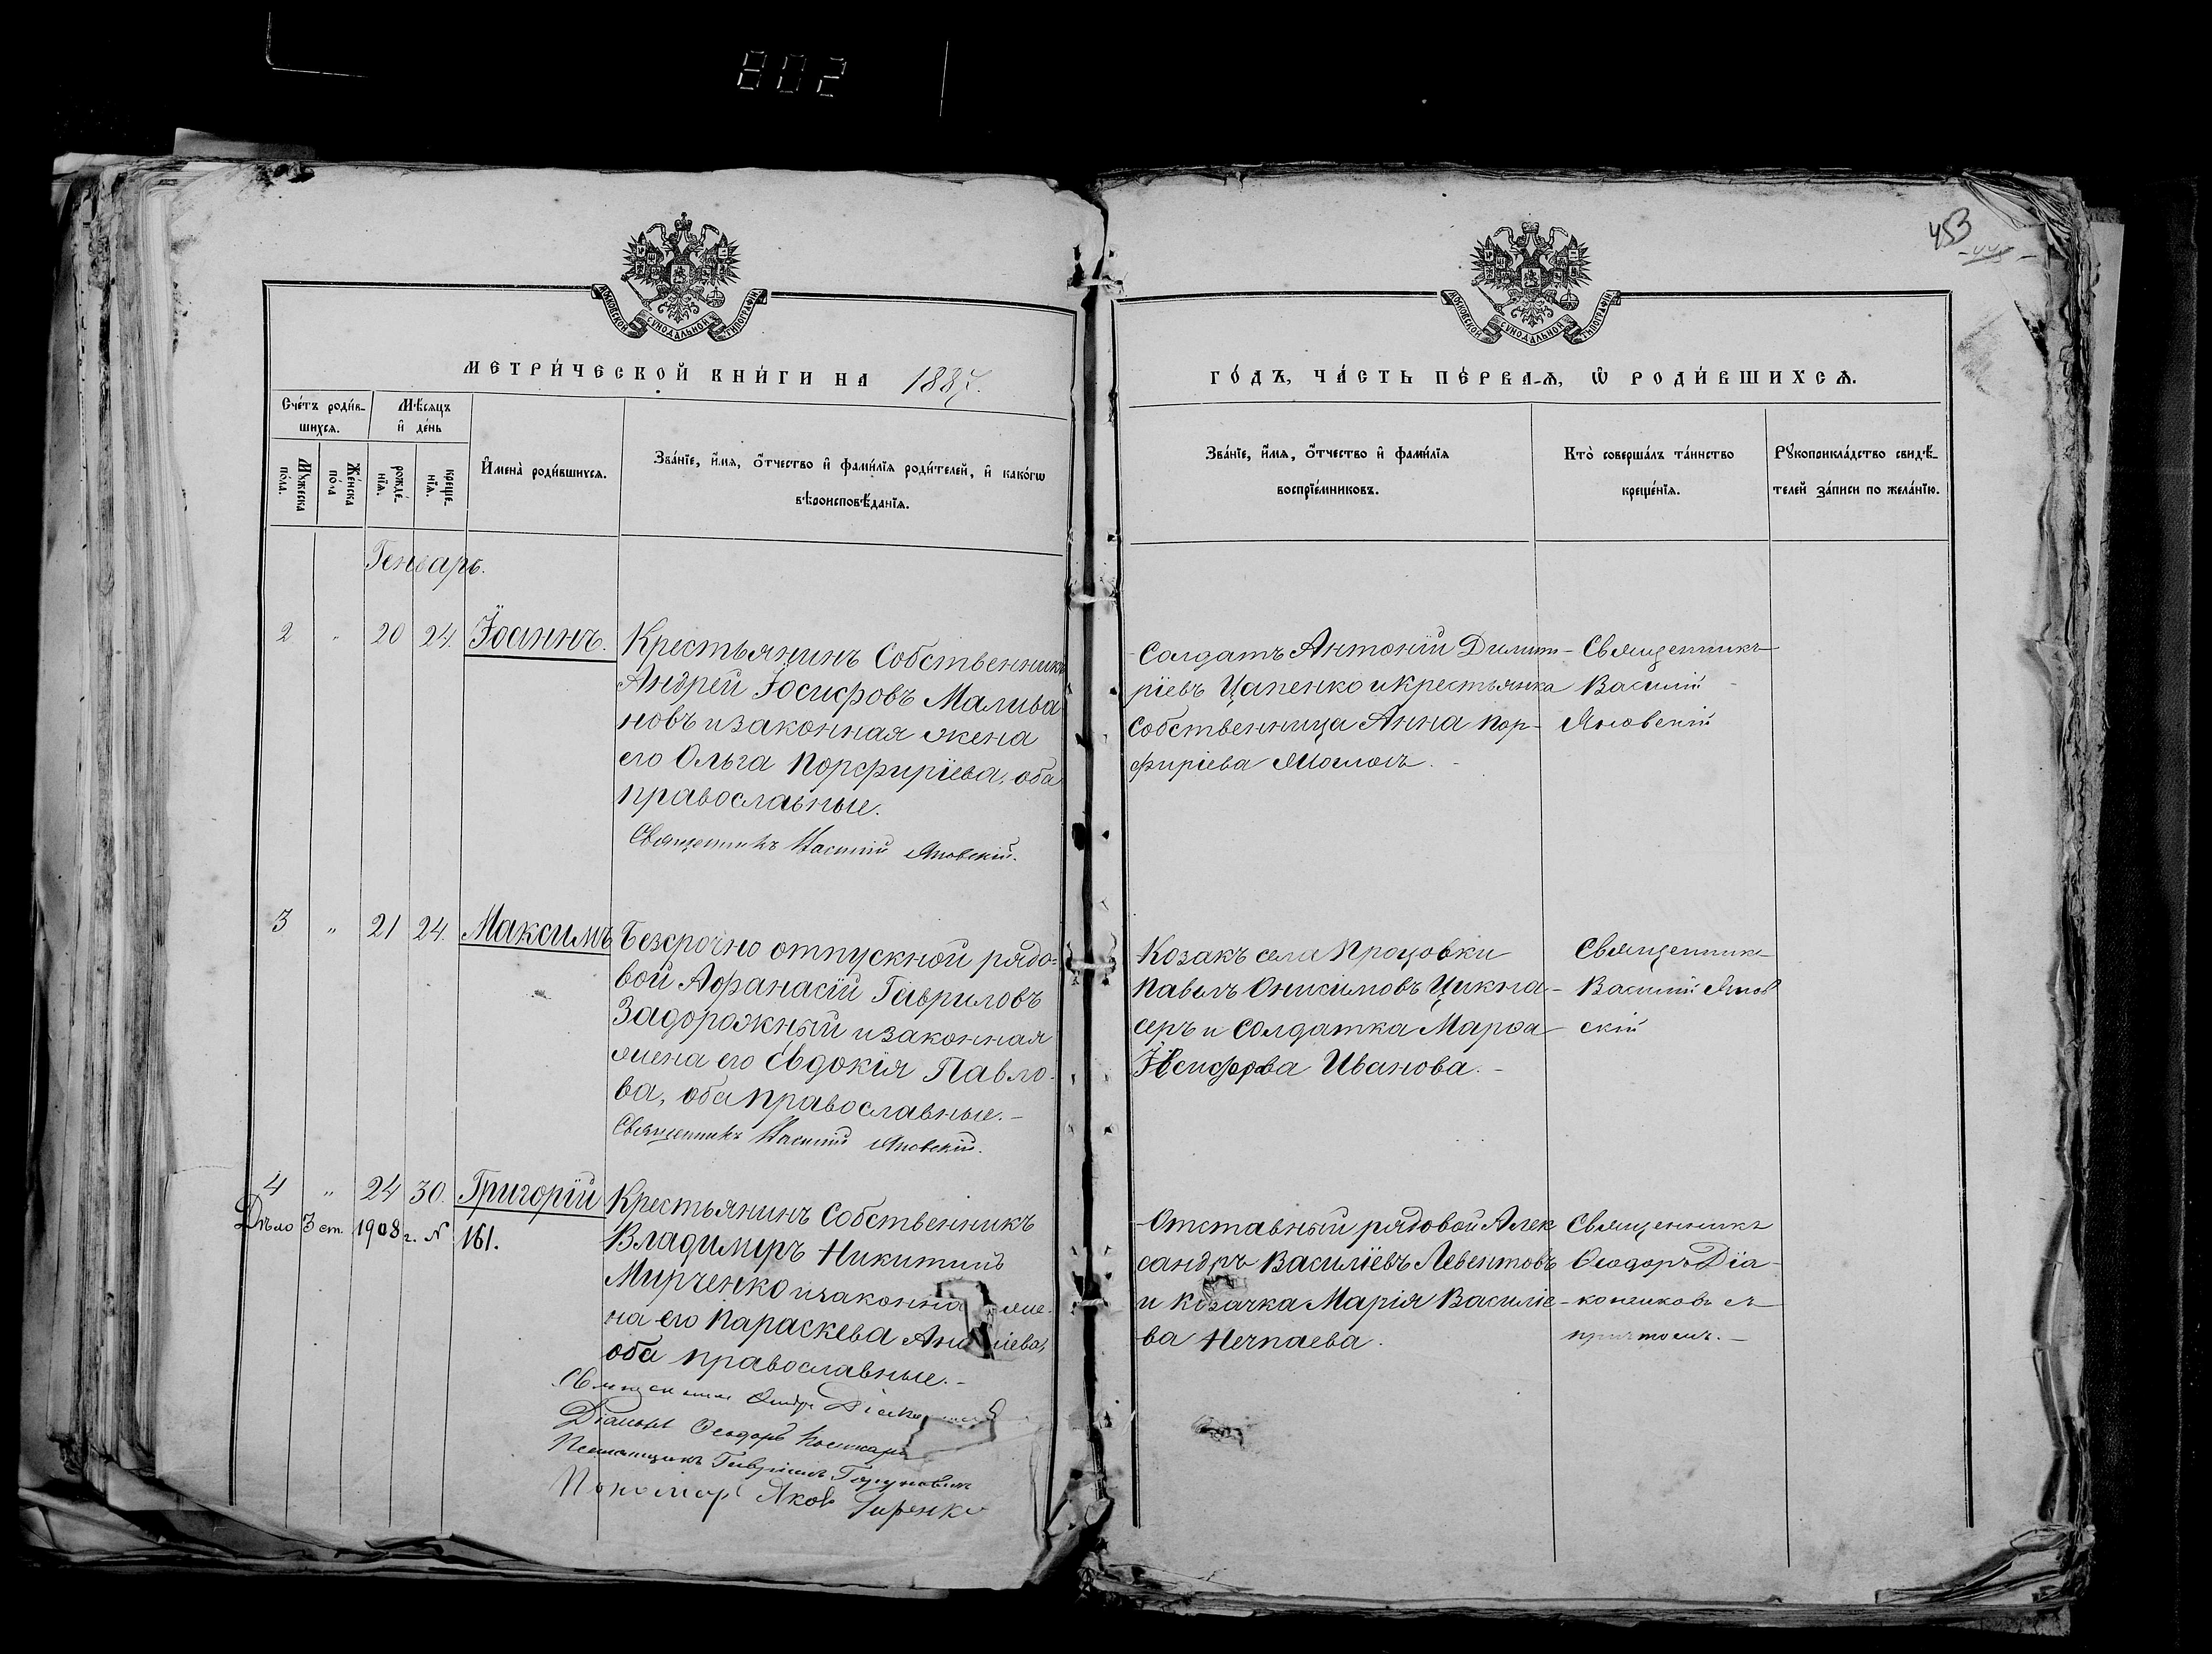 802
453
МОСКОВСКОЙ СУНОДАЛЬНОЙ ТИПОГРАФІИ
МОСКОВСКОЙ СУНОДАЛЬНОЙ ТИПОГРАФІИ
МЕТРИ́ЧЕСКОЙ КНИ́ГИ НА 1887.
ГО́ДЪ, ЧА́СТЬ ПЕ́РВАѦ, Ѡ РОДИ́ВШИХСѦ.
Сче́тъ роди́в-
шихсѧ.
Мѣ́сѧцъ
и҆ де́нь
Мꙋ́жеска
по́ла.
Же́нска
по́ла
рожде́-
нїѧ.
креще́-
нїѧ.
И҆мена̀ роди́вшихсѧ.
Зва́нїе, и҆́мѧ, ѻ҆́тчество и҆ фами́лїѧ роди́телей, и҆ како́гѡ
вѣроисповѣ́данїѧ.
Зва́нїе, и҆́мѧ, ѻ҆́тчество и҆ фами́лїѧ
воспрїе́мниковъ.
Кто̀ соверша́лъ та́инство
креще́нїѧ.
Рꙋкоприкла́дство свидѣ́-
телей за́писи по жела́нїю.
Генварь.
2 " 20 24. Іоаннъ. Крестьянинъ Собственникъ
Андрей Іосифовъ Малива
новъ и законная жена
его Ольга Порфиріева, оба
православные.
Священникъ Василій Яновскій.
Солдатъ Антоній Димит-
ріевъ Цапенко и крестьянка
Собственница Анна Пор-
фиріева
Священникъ
Василій
Яновскій
3 " 21 24. Максимъ Безсрочно отпускной рядо-
вой Афанасій Гавриловъ
Задорожный и законная
жена его Евдокія Павло-
ва, оба православные.-
Священникъ Василій Яновскій.
Козакъ села Процовки
Павелъ Онисимовъ
и Солдатка Марѳа
Іосифова Иванова.-
Священникъ
Василій Янов
скій
4 " 24 30. Григорій Крестьянинъ Собственникъ
Дѣло 3 ст. 1908 г. N 161.
Владиміръ Никитинъ
Мирченко и законна же-
на его Параскева
оба православные.-
Священникъ
Діаконъ Ѳеодоръ
Псаломщикъ Гавріилъ
Пономарь Яковъ
Отставный рядовой Алек
сандръ Василіевъ Левентовъ
и Козачка Марія Василіе-
ва Нечпаева.
Священникъ
Ѳеодоръ Діа-
коненковъ съ
причтомъ.-